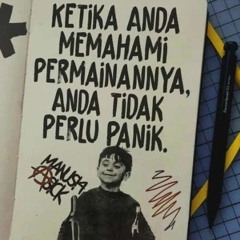 KETIKA ANDA
MEMAHAMI
PERMAINANNYA,
ANDA TIDAK
PERLU PANIK.
MANUSIA